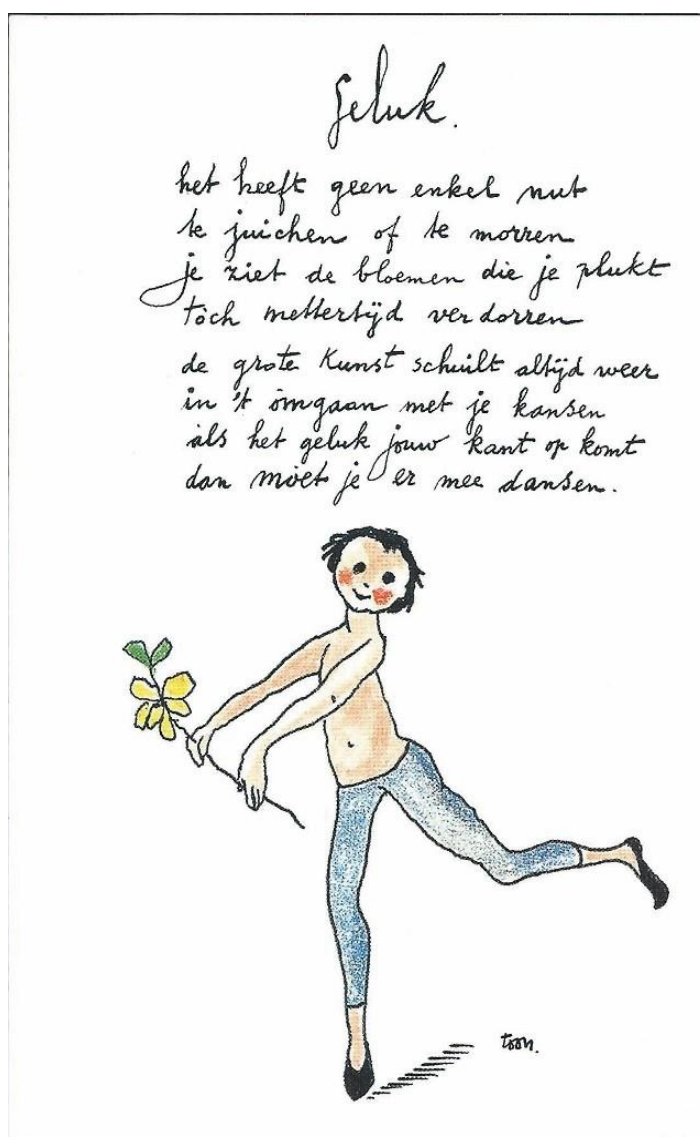 geluk.
het heeft geen enkel nut
te juichen of te morren
je ziet de bloemen die je plukt
tòch mettertijd verdorren
de grote Kunst schuilt altijd weer
in 't òmgaan met je kansen
als het geluk jouw kant op komt
dan moet je er mee dansen.
toon.